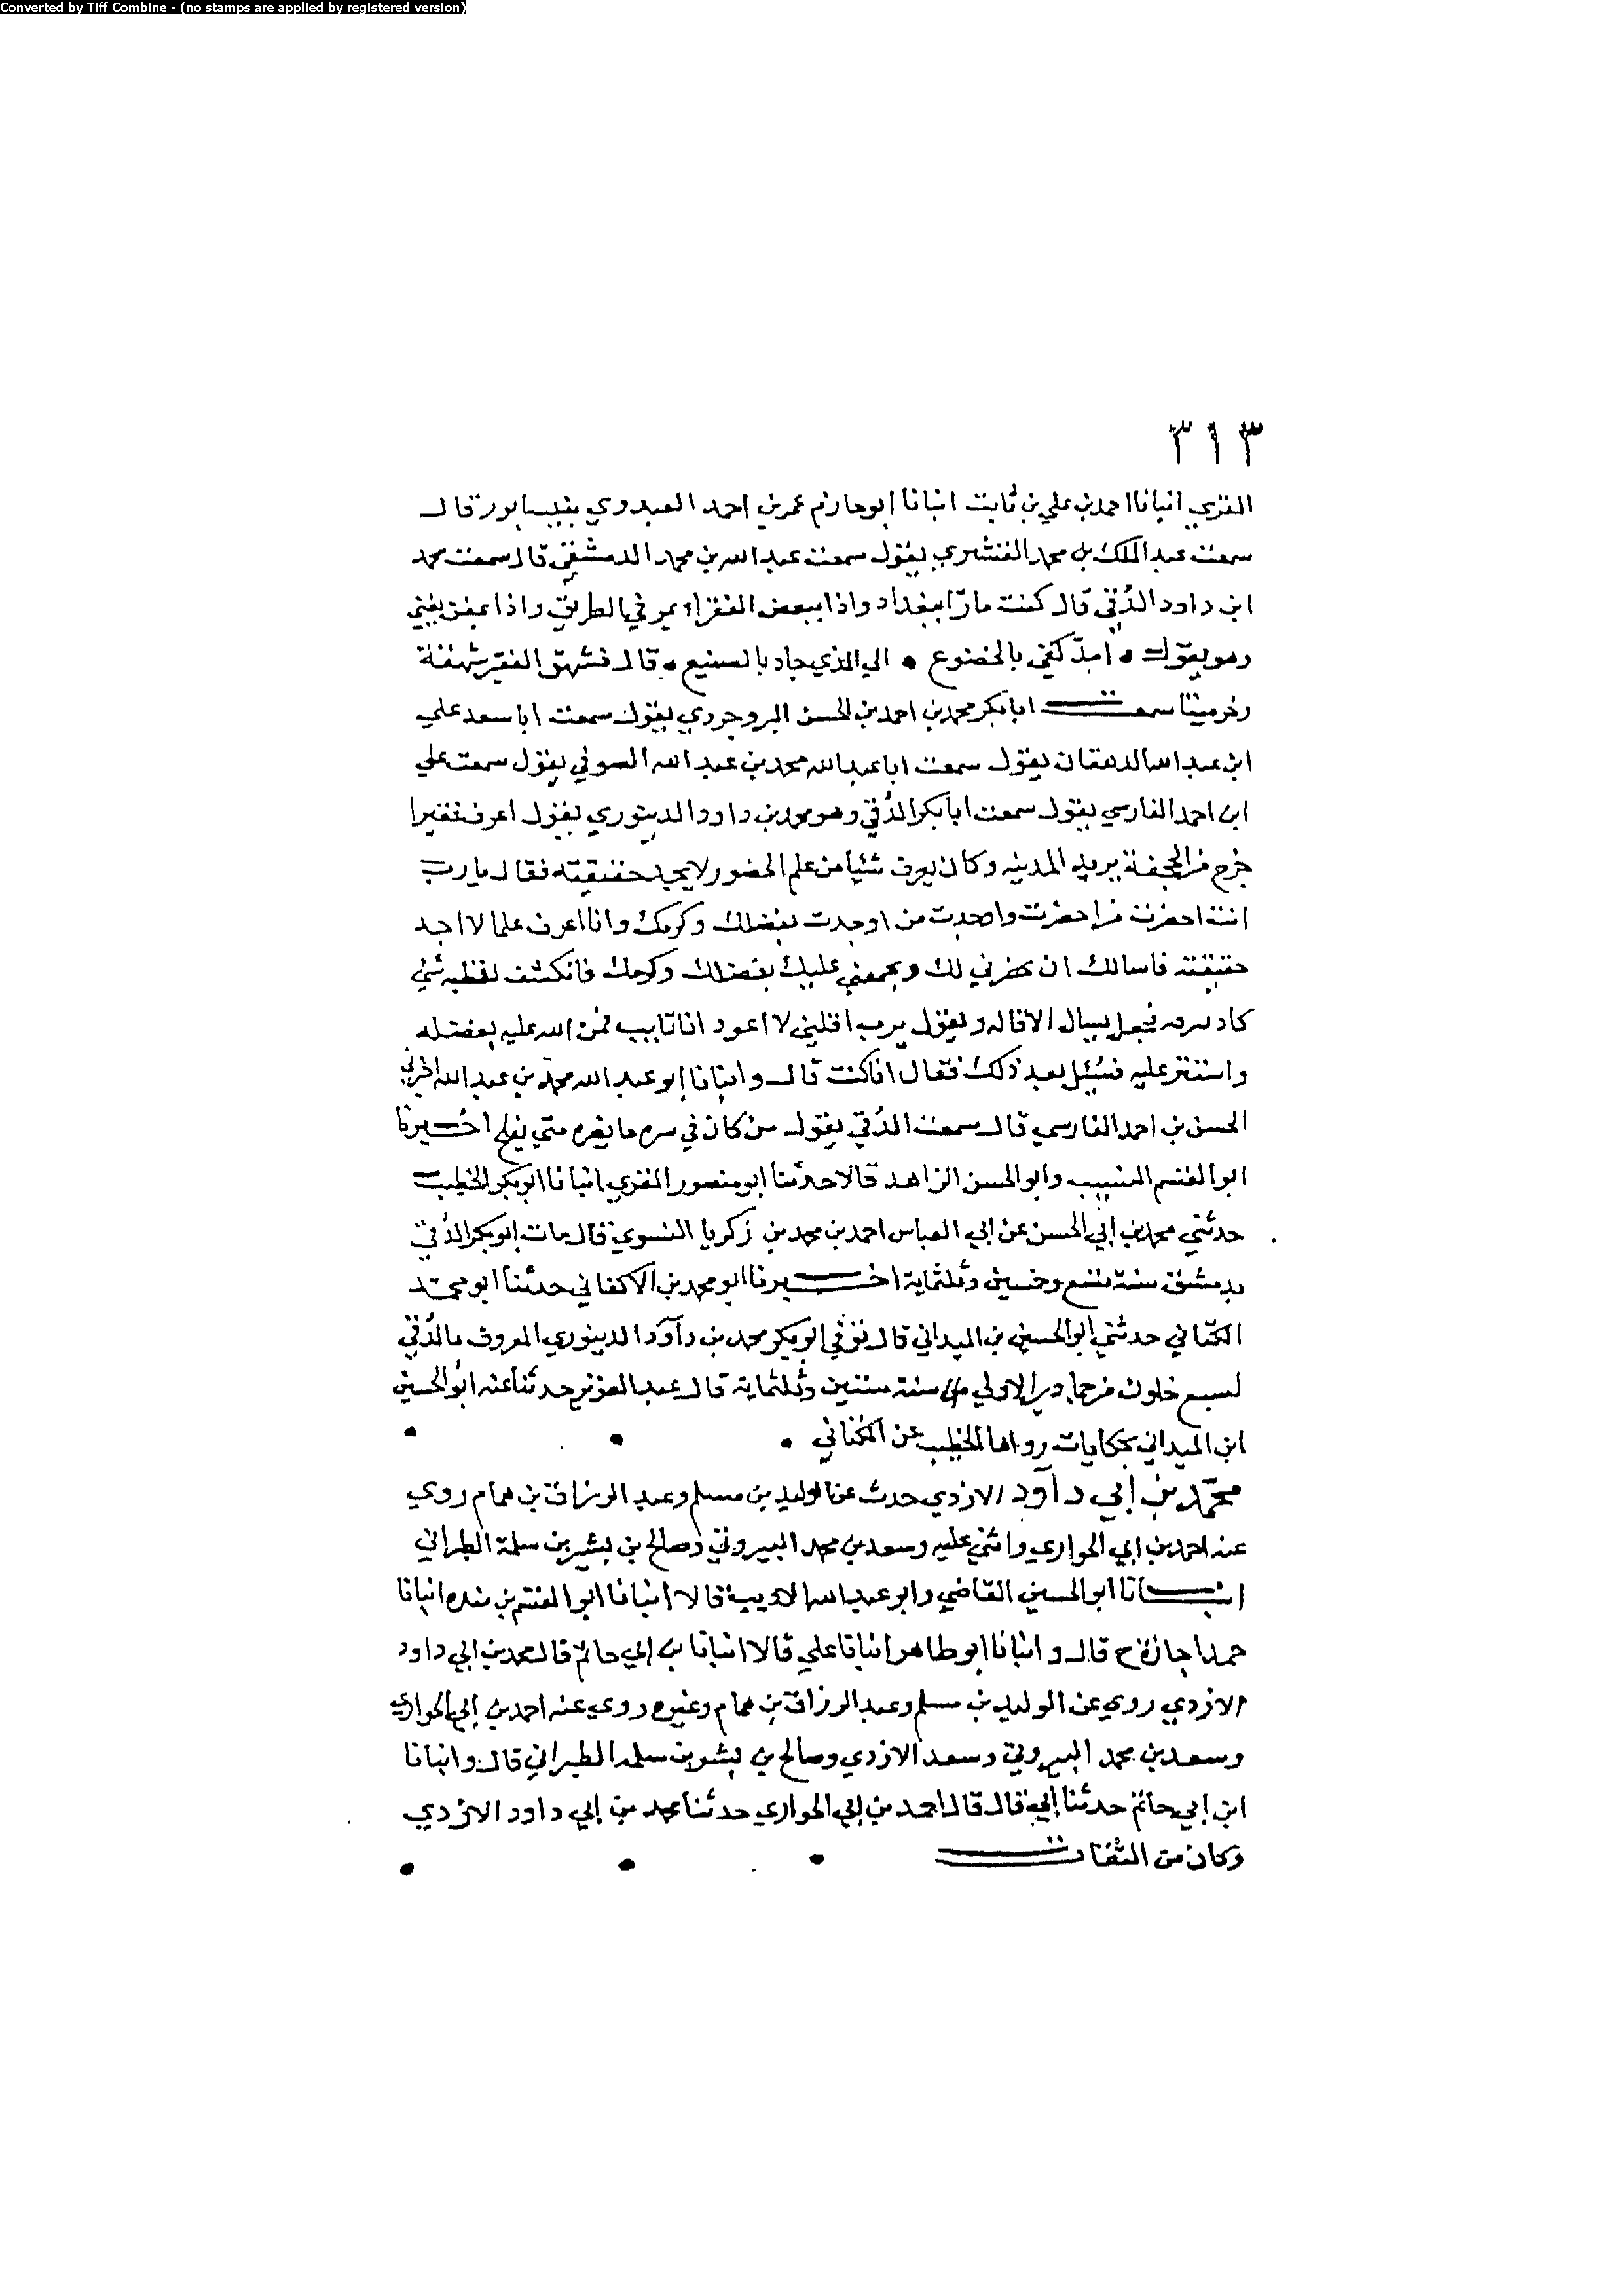 Converted by Tiff Combine - (no stamps are applied by registered version)
٣١٣
المقري انبانا احمد بن علي بن ثابت انبانا ابو حازم عمر بن احمد العبدوي بنيسابور قال
سمعت عبد الملك بن محمد القشيري يقول سمعت عبد الله بن محمد الدمشقي قال سمعت محمد
ابن داود الدُقي قال كنت مارّا ببغداد واذا ببعض الفقراء يمر في الطريق واذا بمغن يغني
وهو يقول • امدّ كفي بالخضوع • الي الذي جاد بالصنيع • قال فشهق الفقير شهقة
وخر ميتا سمعت ابا بكر محمد بن احمد بن الحسن البروجردي يقول سمعت ابا سعد علي
ابن عبد الله الدهقان يقول سمعت ابا عبد الله محمد بن عبد الله الصوفي يقول سمعت علي
ابن احمد الفارسي يقول سمعت ابا بكر الدُقي وهو محمد بن داود الدينوري يقول اعرف فقيرا
خرج من الجحفة يريد المدينه وكان يعرف شئيا من علم الحضور لا يجد حقيقته فقال يا رب
انت احضرت من احضرت واوجدت من اوجدت بفضلك وكرمك وانا اعرف علما لا اجد
حقيقته فاسالك ان تحضرني لك وتجمعني عليك بفضلك وكرمك فانكشف لقلبه شي
كاد فجعل يسال الاقاله ويقول يرب اقلني لا اعود انا تايب فمن الله عليه بفضله
واستتر عليه فسُئِل بعد ذلك فقال انا كنت قال وانبانا ابو عبد الله محمد بن عبد الله اخبرني
الحسن بن احمد الفارسي قال سمعت الدُقي يقول من كان في سره ما يغره متي يفلح اخبرنا
ابو القسم النسيب وابو الحسن الزاهد قالا حدثنا ابو منصور المقري انبانا ابو بكر الخطيب
حدثني محمد بن ابي الحسن عن ابي العباس احمد بن محمد بن زكريا النسوي قال مات ابو بكر الدُقي
بدمشق سنة تسع وخمسين وثلثماية اخبرنا ابو محمد بن الاكفاني حدثنا ابو محمد
الكتاني حدثني ابو الحسين بن الميداني قال توفي ابو بكر محمد بن دآود الدينوري المعروف بالدُقي
لسبع خلون من جمادي الاولي سنة ستين وثلثماية قال عبد العزيز حدثنا عنه ابو الحسين
ابن الميداني بحكايات رواها الخطيب عن الكتاني •
محمّد بن ابي دآود الازدي حدث عن الوليد بن مسلم وعبد الرزاق بن همام روي
عنه احمد بن ابي الحواري واثني عليه وسعد بن محمد البيروتي وصالح بن بشير بن سلمة الطبراني
انبانا ابو الحسين القاضي وابو عبد الله الاديب قالا انبانا ابو القسم بن منده انبانا
حمد اجازة ح قال وانبانا ابو طاهر انبانا علي قالا انبانا بن ابي حاتم قال محمد بن ابي داود
الازدي روي عن الوليد بن مسلم وعبد الرزاق بن همام وغيره روي عنه احمد بن ابي الحواري
وسعد بن محمد البيروتي وسعد الازدي وصالح بن بشر بن سلمه الطبراني قال وانبانا
ابن ابي حاتم حدثنا ابي قال قال احمد بن ابي الحواري حدثنا محمد بن ابي داود الازدي
وكان من الثقات